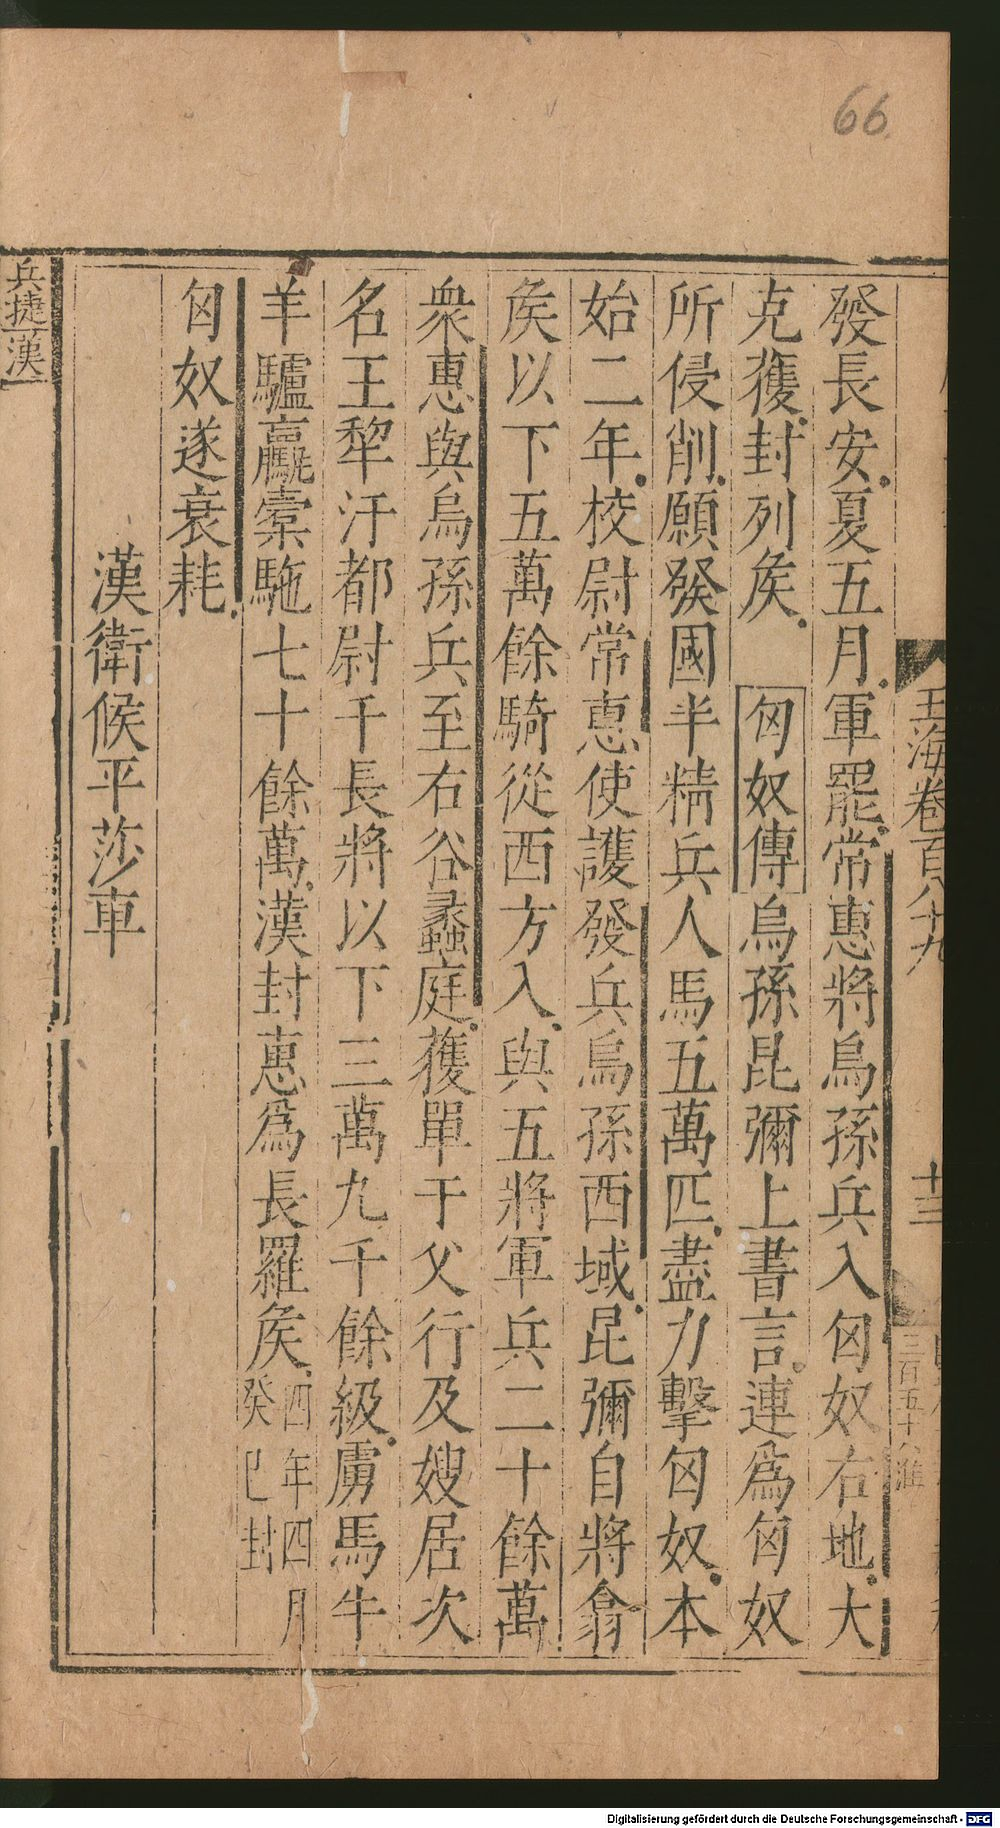 66
玉海卷百八十九
十三
三百五十八
發長安夏五月軍罷常惠將烏孫兵入匈奴右地大
克獲封列矦 匈奴傳烏孫昆彌上書言連爲匈奴
所侵削願發國半精兵人馬五萬匹盡力擊匈奴本
始二年校尉常惠使護發兵烏孫西域昆彌自將翕
矦以下五萬餘騎從西方入與五將軍兵二十餘萬
衆惠與烏孫兵至右谷蠡庭獲單于父行及嫂居次
名王犂汗都尉千長將以下三萬九千餘級虜馬牛
羊驢驘橐駞七十餘萬漢封惠爲長羅矦四年四月
癸巳封
匈奴遂衰耗
漢衛候平莎車
兵捷漢
Digitalisierung gefördert durch die Deutsche Forschungsgemeinschaft - DFG